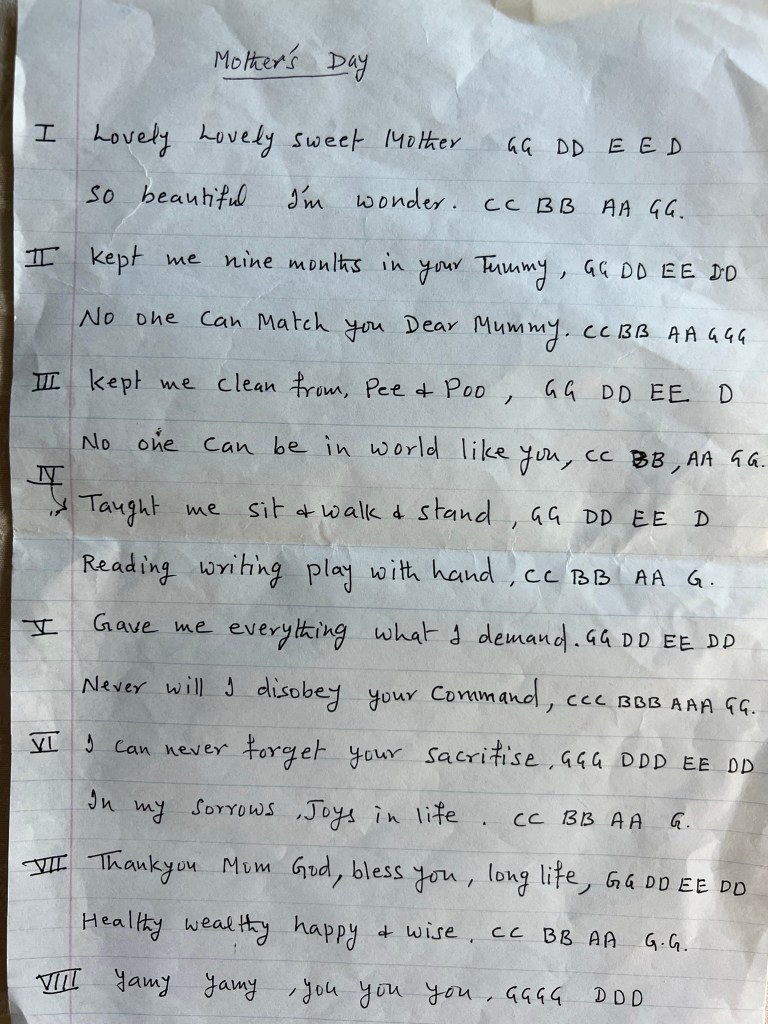 Mother's Day
I Lovely Lovely sweet Mother GG DD E E D
So beautiful I'm wonder. CC BB AA GG.
II Kept me nine months in your Tummy, GG DD EE DD
No one can Match you Dear Mummy. CC BB AA GGG
III Kept me clean from, Pee & Poo, GG DD EE D
No one can be in world like you, CC BB, AA GG.
IV
Taught me sit & walk & stand, GG DD EE D
Reading writing play with hand, CC BB AA G.
V Gave me everything what I demand. GG DD EE DD
Never will I disobey your Command, CCC BBB AAA GG.
VI I can never forget your sacrifise, GGG DDD EE DD
In my sorrows, Joys in life. CC BB AA G.
VII Thankyou Mom God, bless you, long life, GG DD EE DD
Healthy wealthy happy & wise. CC BB AA G.G.
VIII Yamy Yamy, you you you, GGGG DDD